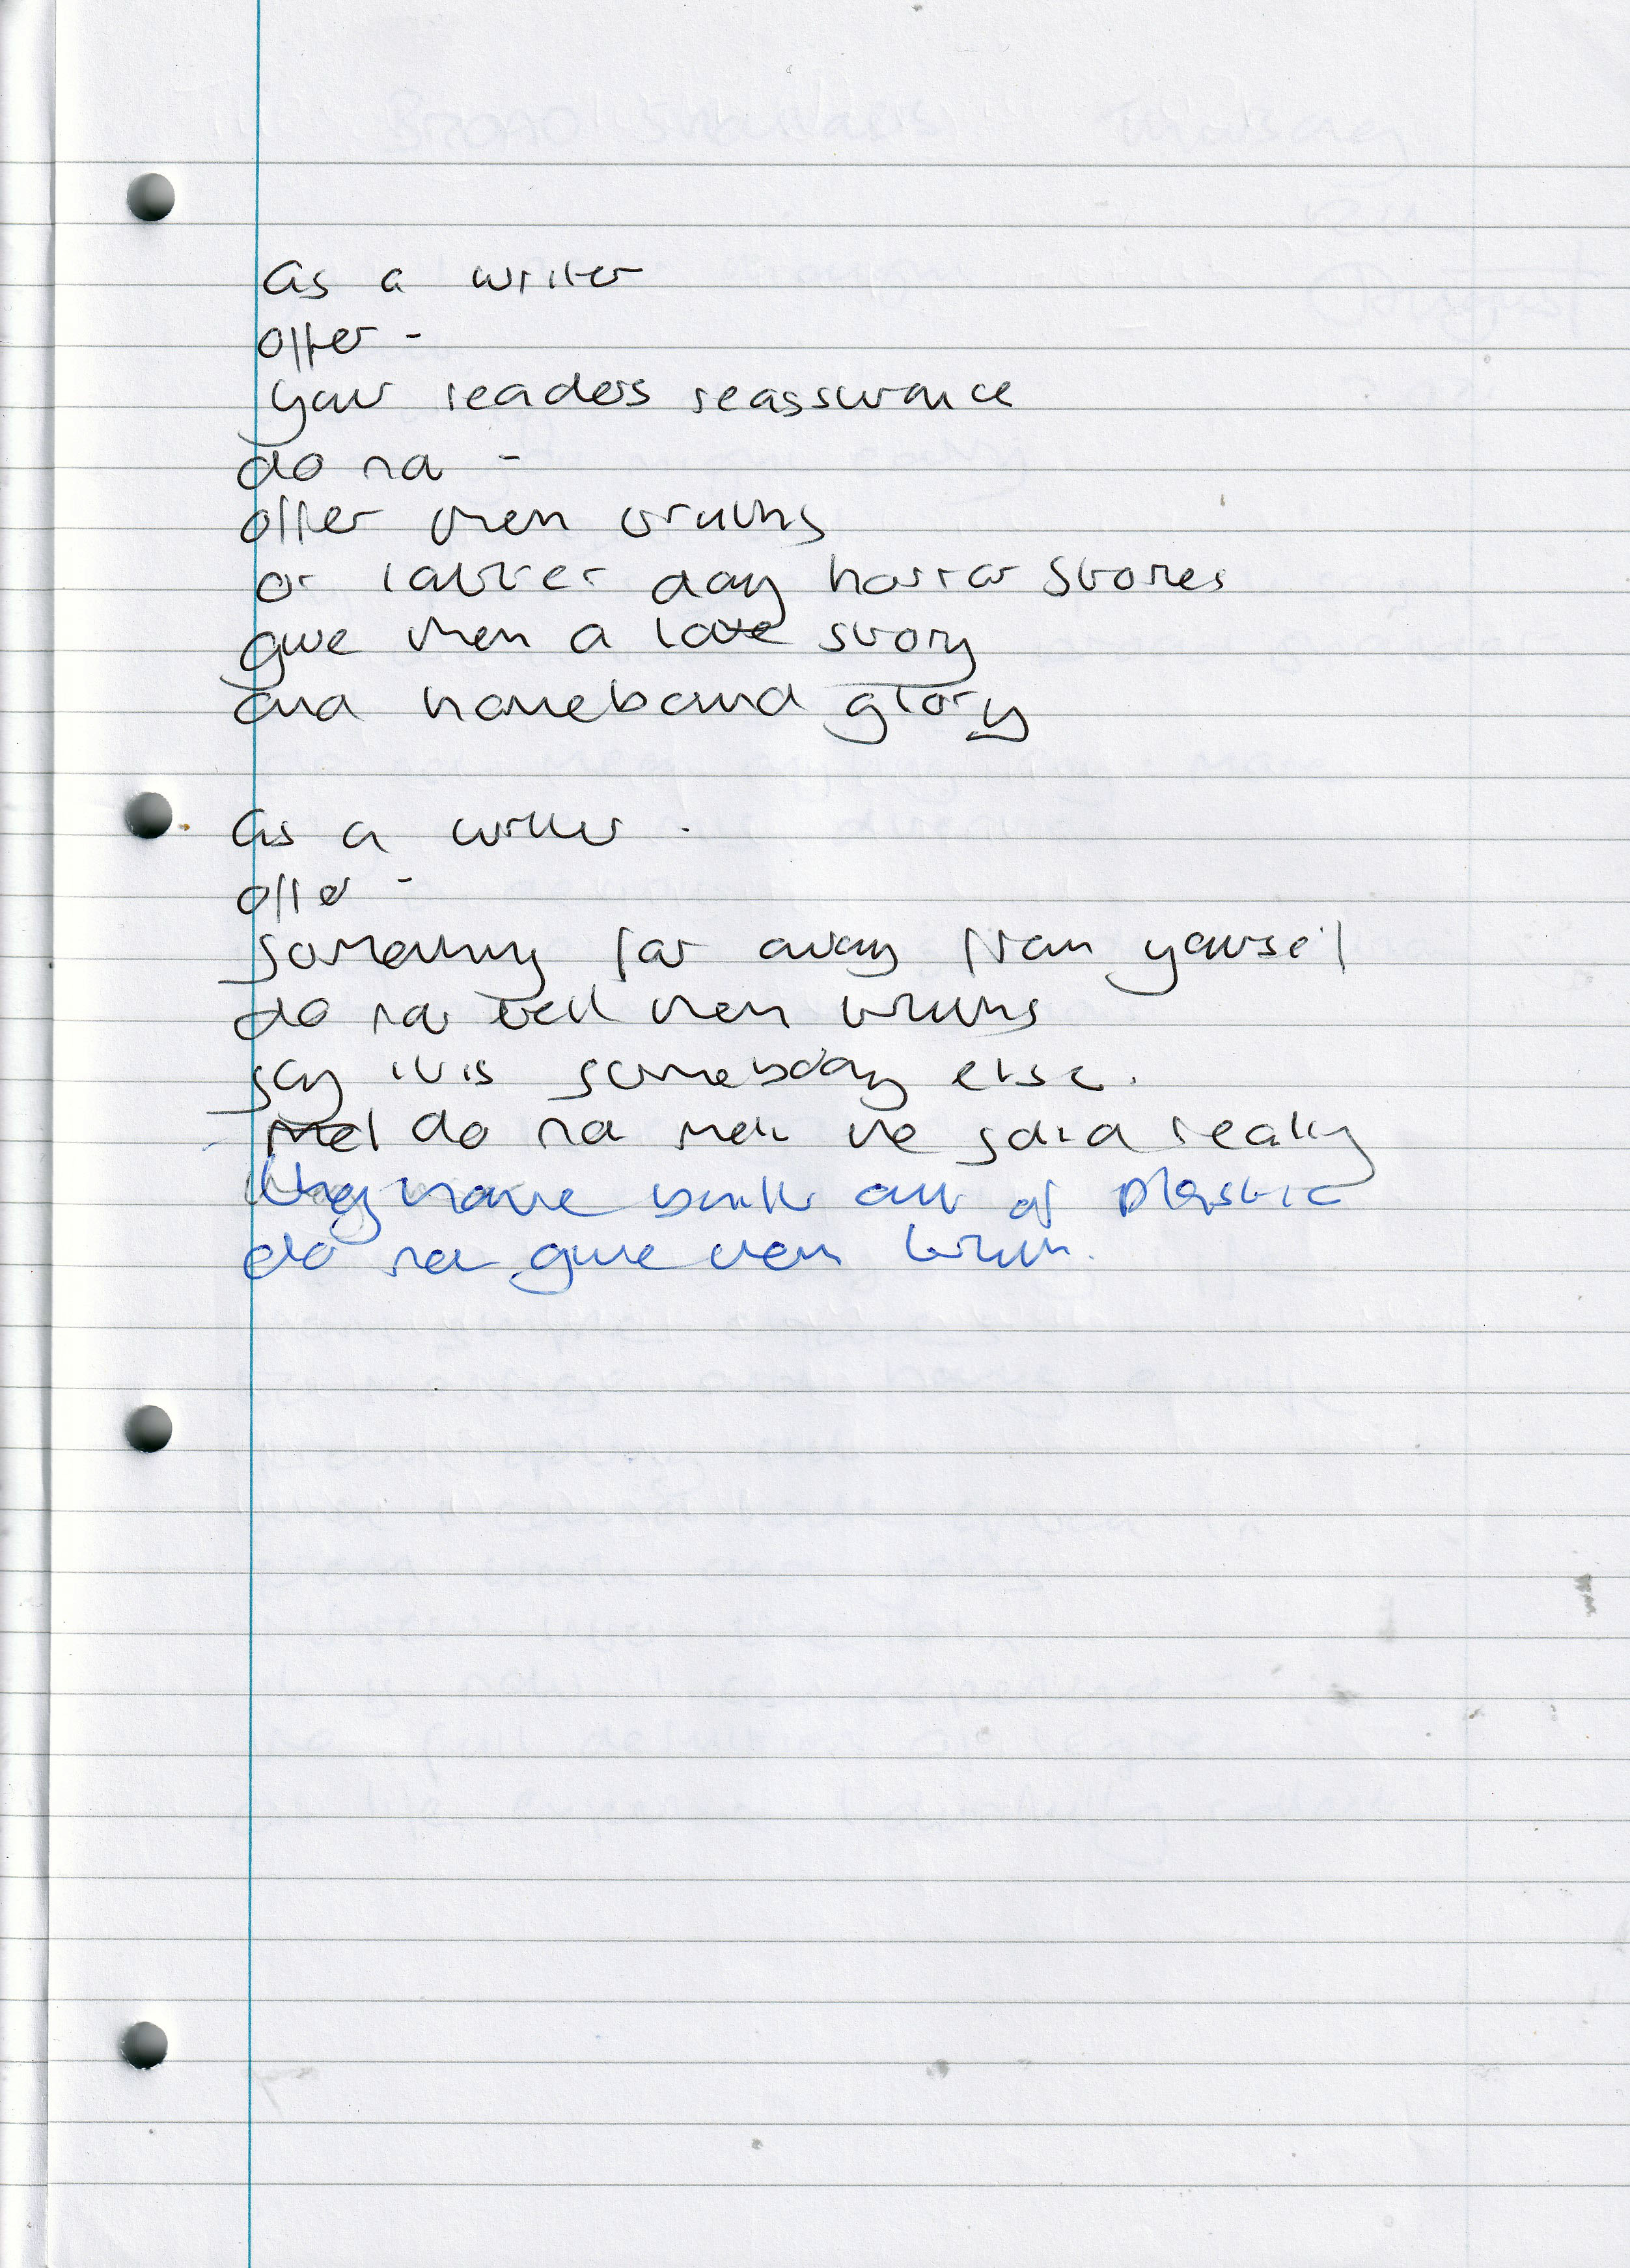 as a writer
offer -
your readers reassurance
do not -
offer them truths
or latter day horror stories
give them a love story
and homebound glory
as a writer .
offer -
something far away from yourself
do not tell them truths
say it is somebody else.
do not melt the gold really
they have built out of plastic
do not give them truth.